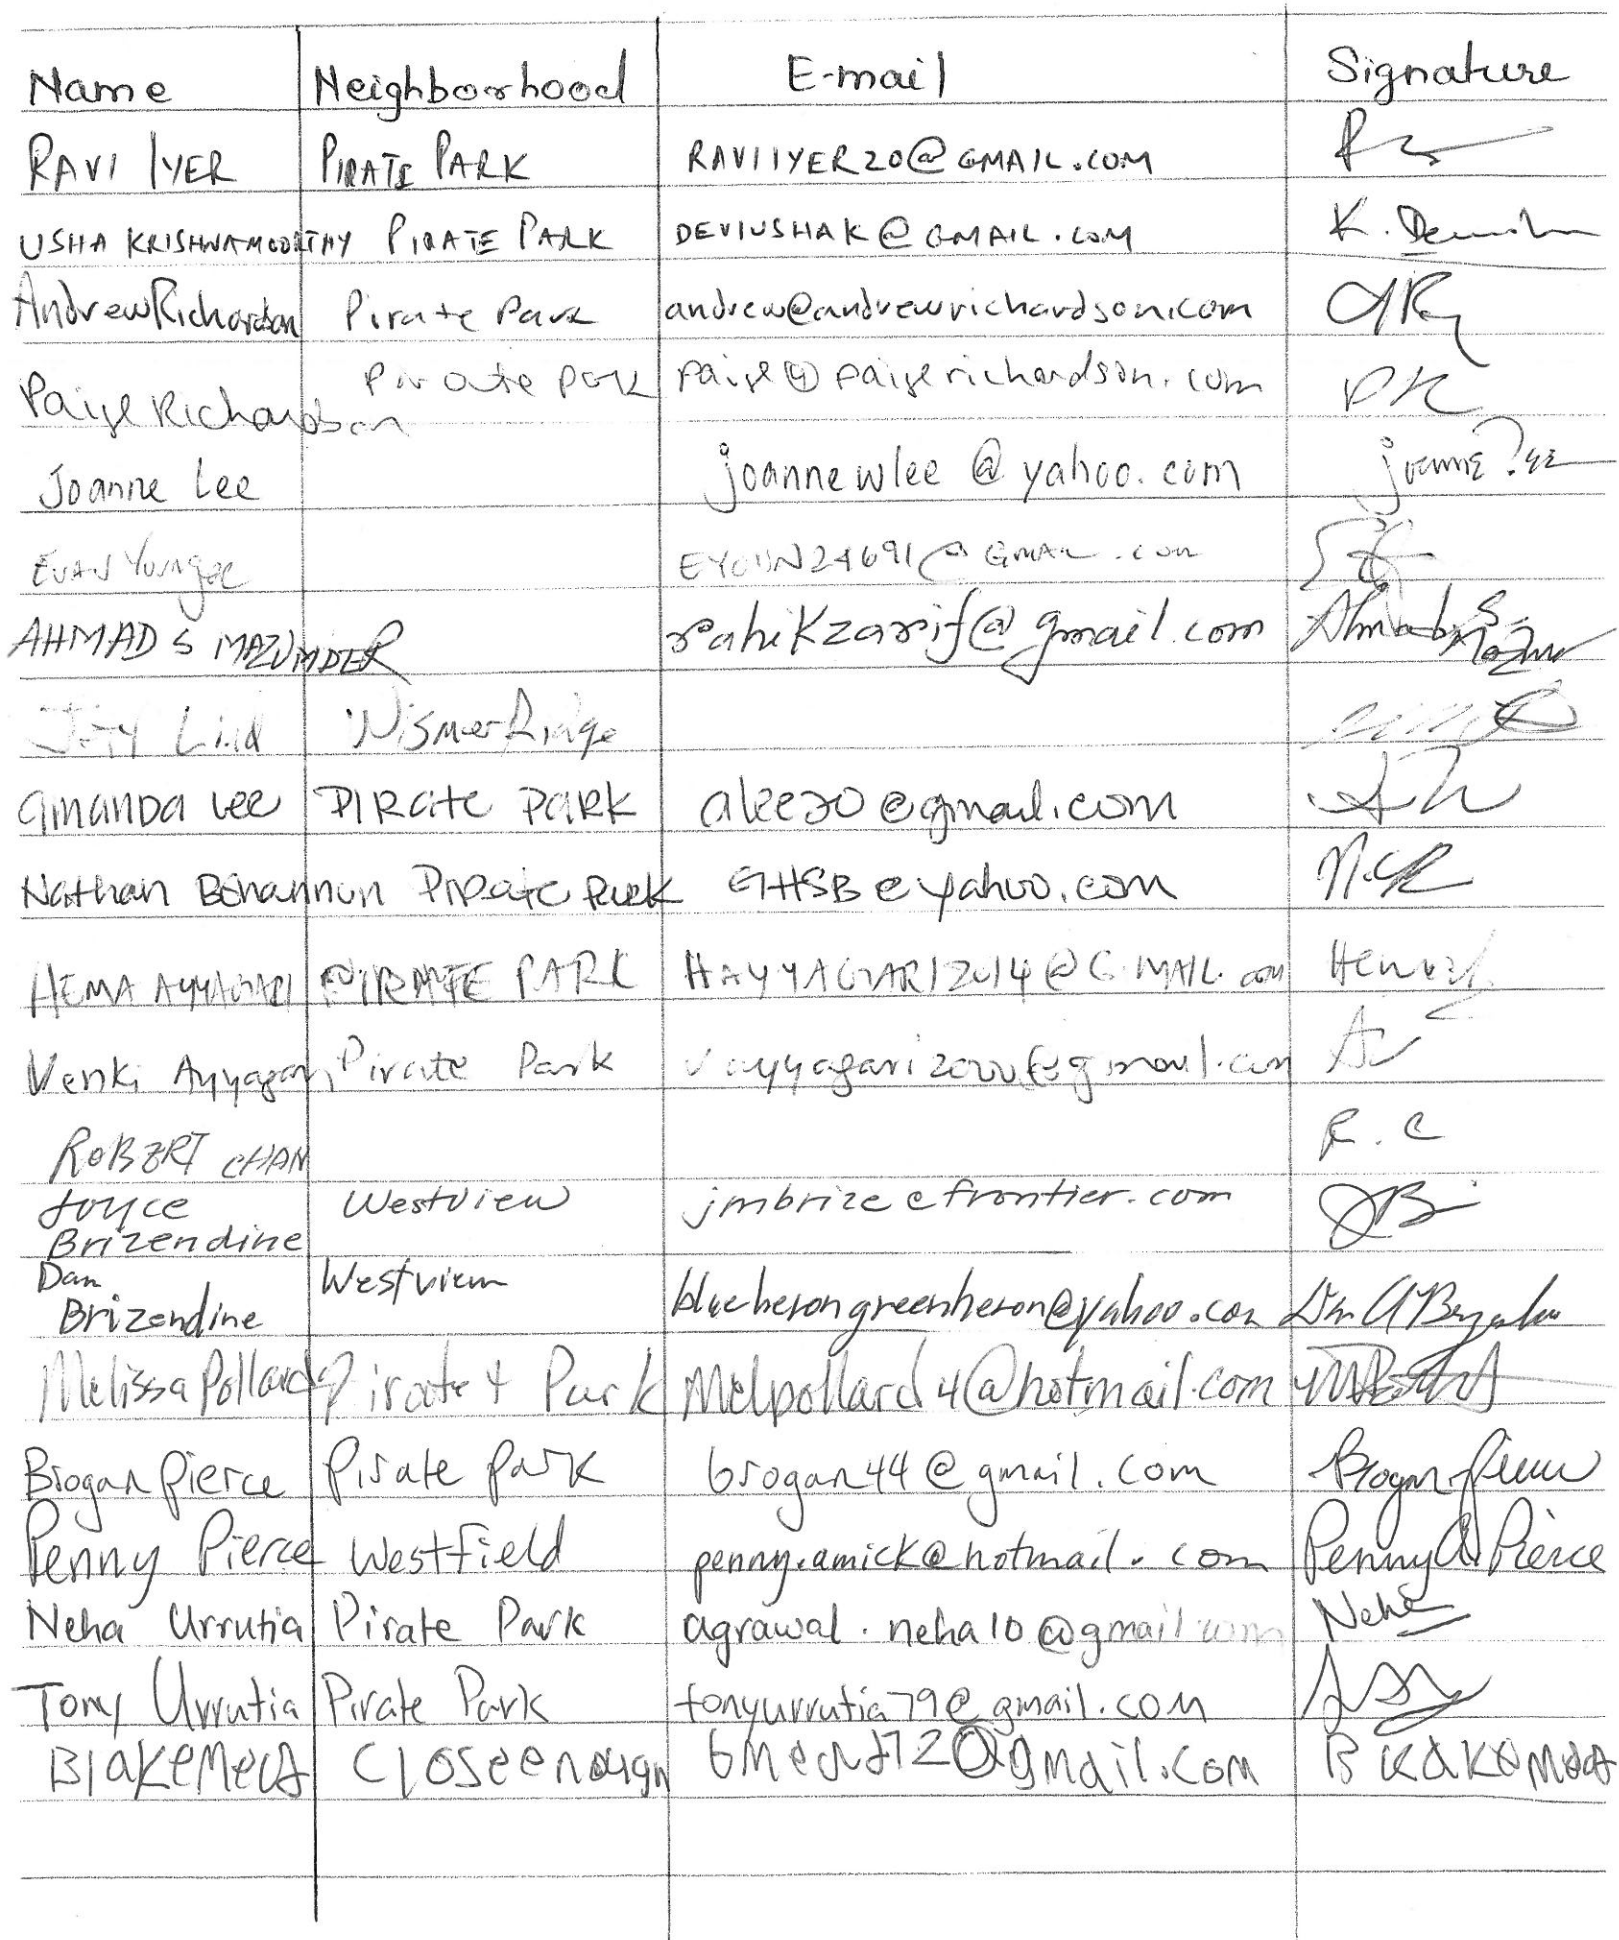 Name Neighborhood E-mail Signature
RAVI IYER PIRATE PARK RAVIIYER20@GMAIL.COM
USHA KRISHNAMOORTHY PIRATE PARK DEVIUSHAK@GMAIL.COM K.
Andrew Richardson Pirate Park andrew@andrewrichardson.com AR
Paige Richardson Pirate park paige@paigerichardson.com PR
Joanne Lee joannewlee@yahoo.com Joanne Lee
EVAN EYOUN24691@GMAIL.COM
AHMAD S MAZUMDER rahikzarif@gmail.com Ahmad S
Lind Wismer Ridge
amanda Lee PIRate PARK alee20@gmail.com
Nathan Bohannon PIRate Park GHSB@yahoo.com
HEMA AYYAGARI PIRATE PARK HAYYAGARI2014@GMAIL.com
Venki Ayyagari Pirate Park vayyagari2000@gmail.com
ROBERT CHAN R.C
Joyce Westview jmbrize@frontier.com JB
Brizendine
Dan Westview
Brizendine blueherongreenheron@yahoo.com
Melissa Pollard Pirate Park Melpollard4@hotmail.com
Brogan Pierce Pirate park brogan44@gmail.com Brogan Pierce
Penny Pierce Westfield penny.amick@hotmail.com Penny A. Pierce
Neha Urrutia Pirate Park agrawal.neha10@gmail.com Neha
Tony Urrutia Pirate Park tonyurrutia79@gmail.com
Blake Close enough @gmail.com